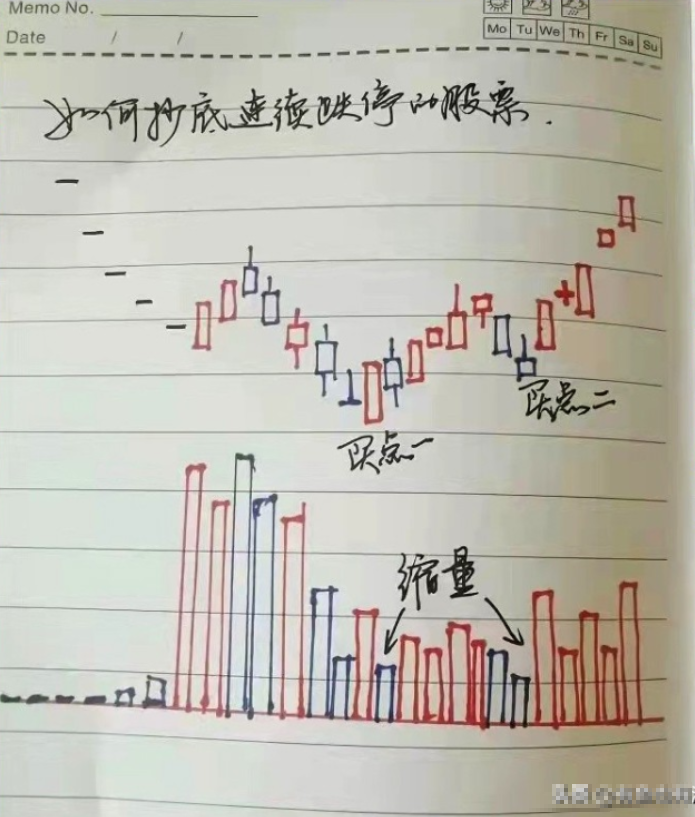 Memo No.
Mo Tu We Th Fr Sa Su
Date / /
如何抄底连续跌停的股票.
买点二
买点一
缩量
头条